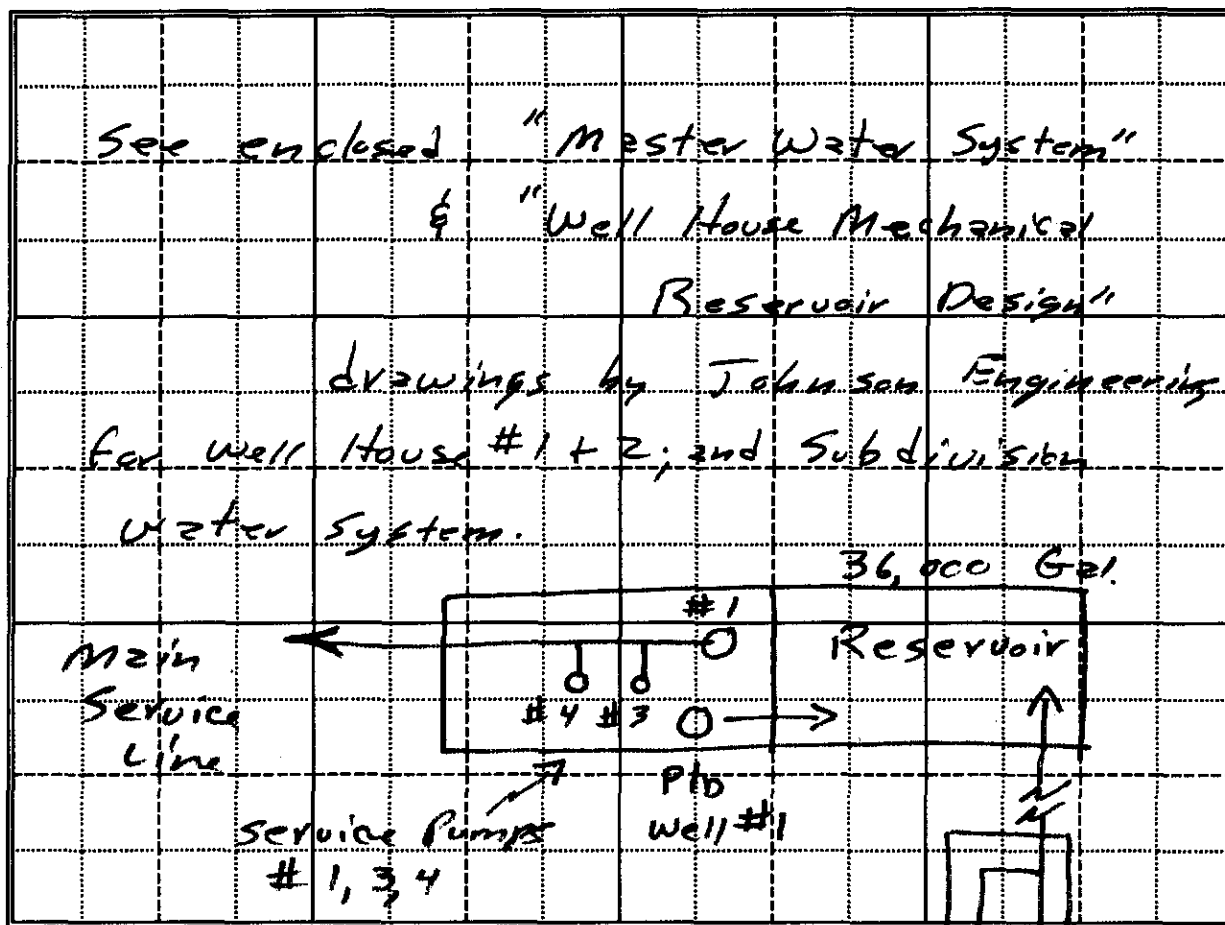 See enclosed "Master Water System"
& "Well House Mechanical
Reservoir Design"
drawings by Johnson Engineering
for Well House #1 + 2; and Subdivision
water System.
36,000 Gal.
#1
Reservoir
Main
Service
Line
#4 #3
Well #1
Service Pumps
#1, 3, 4